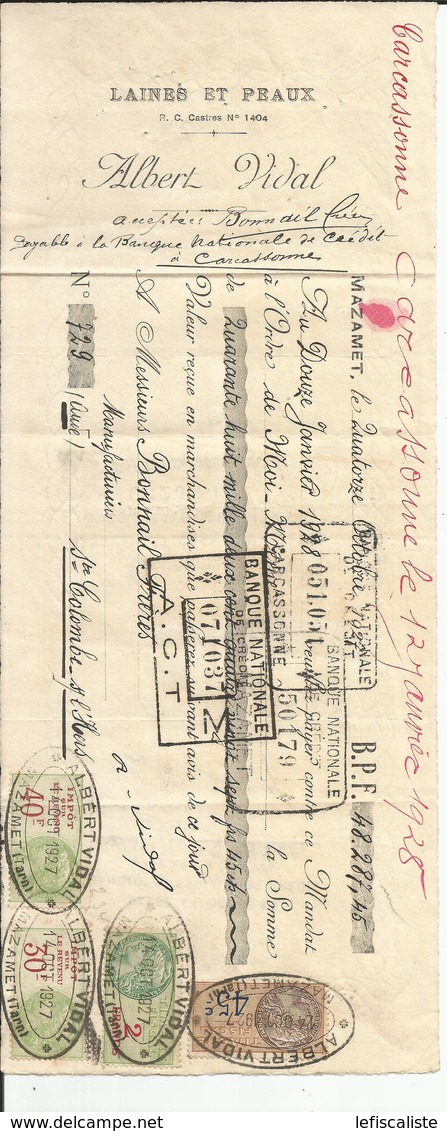 LAINES ET PEAUX
R. C. Castres N° 1404
Albert Vidal
acceptée: Bonnail frères
Payable à la Banque Nationale de Crédit
à Carcassonne
Carcassonne
Carcassonne le 12 janvier 1928
MAZAMET, le Quatorze Octobre 1927 B.P.F. 48.287,45
Au Douze Janvier 1928 veuillez payer contre ce Mandat
à l'Ordre de Moi-Même la Somme
de Quarante huit mille deux cent quatre vingt sept frs 45 cts
Valeur reçue en marchandises que passerez suivant avis de ce jour
A Messieurs Bonnail Frères
Manufacturiers
N° 729 (Aude) Ste Colombe s/ l'Hers
a. Vidal
BANQUE NATIONALE
DE CRÉDIT
CARCASSONNE
051.051
50179
BANQUE NATIONALE
DE CRÉDIT
071037
A.C.T
M
IMPÔT
SUR
LE REVENU
40F
ALBERT VIDAL
14 OCT 1927
MAZAMET (Tarn)
IMPÔT
SUR
LE REVENU
30F
ALBERT VIDAL
14 OCT 1927
MAZAMET (Tarn)
2
FRANCS
ALBERT VIDAL
14 OCT 1927
MAZAMET (Tarn)
45c
ALBERT VIDAL
14 OCT 1927
MAZAMET (Tarn)
www.delcampe.net
lefiscaliste